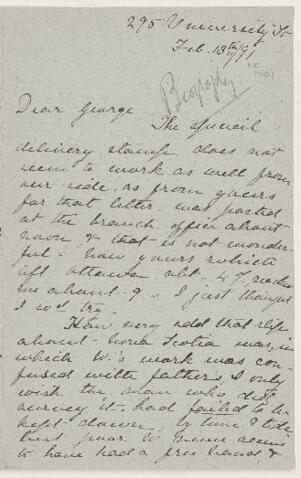 295 University St
Feb. 18th/91
Biography
Dear George
The special
delivery stamp does not
seem to work as well from
our side, as from yours
for that letter was posted
at the branch office about
noon, & that is not wonder-
ful - how yours which
left Ottawa abt. 4 reaches
me about 9 - I just thought
I wd try.
How very odd that slip
about Nova Scotia was in
which W.'s work was con-
fused with father's I only
wish the man who did
survey it had failed to be
kept down, by time & tide
but poor W. never seems
to have had a free hand, &